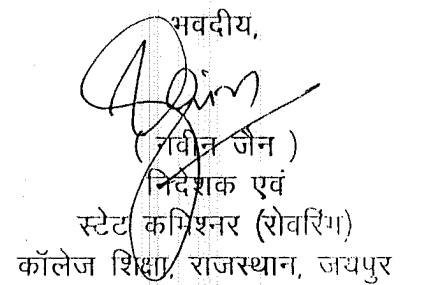 भवदीय,
( नवीन जैन )
निदेशक एवं
स्टेट कमिश्नर (रोवरिंग)
कॉलेज शिक्षा, राजस्थान, जयपुर